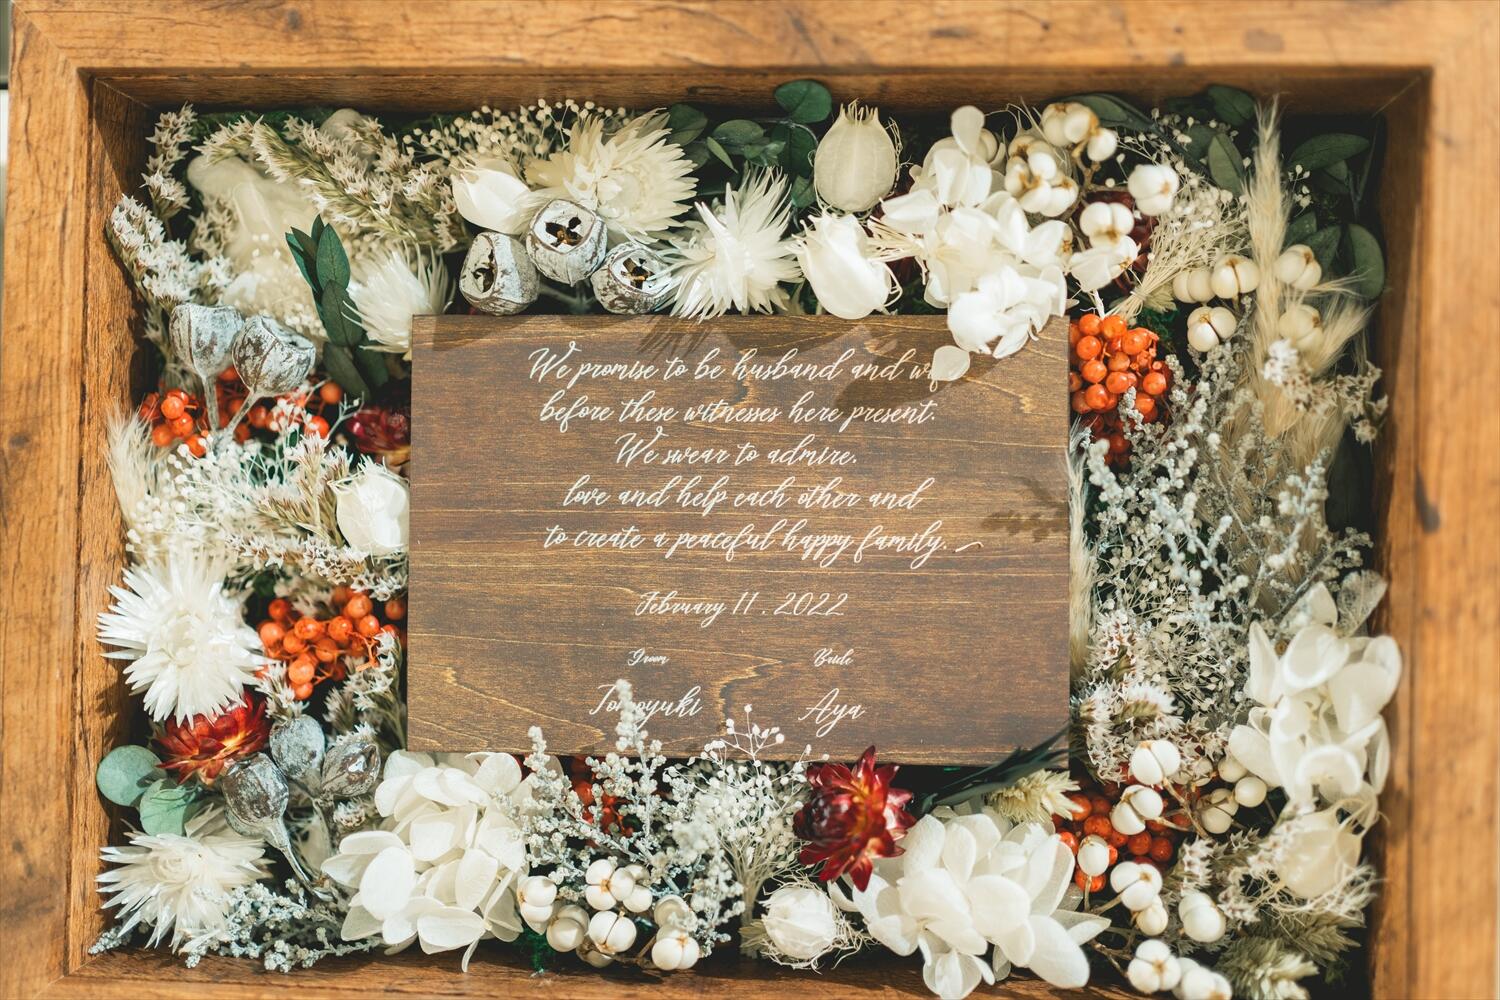 We promise to be husband and wife
before these witnesses here present.
We swear to admire.
love and help each other and
to create a peaceful happy family.
February 11 . 2022
Groom Bride
Tomoyuki Aya